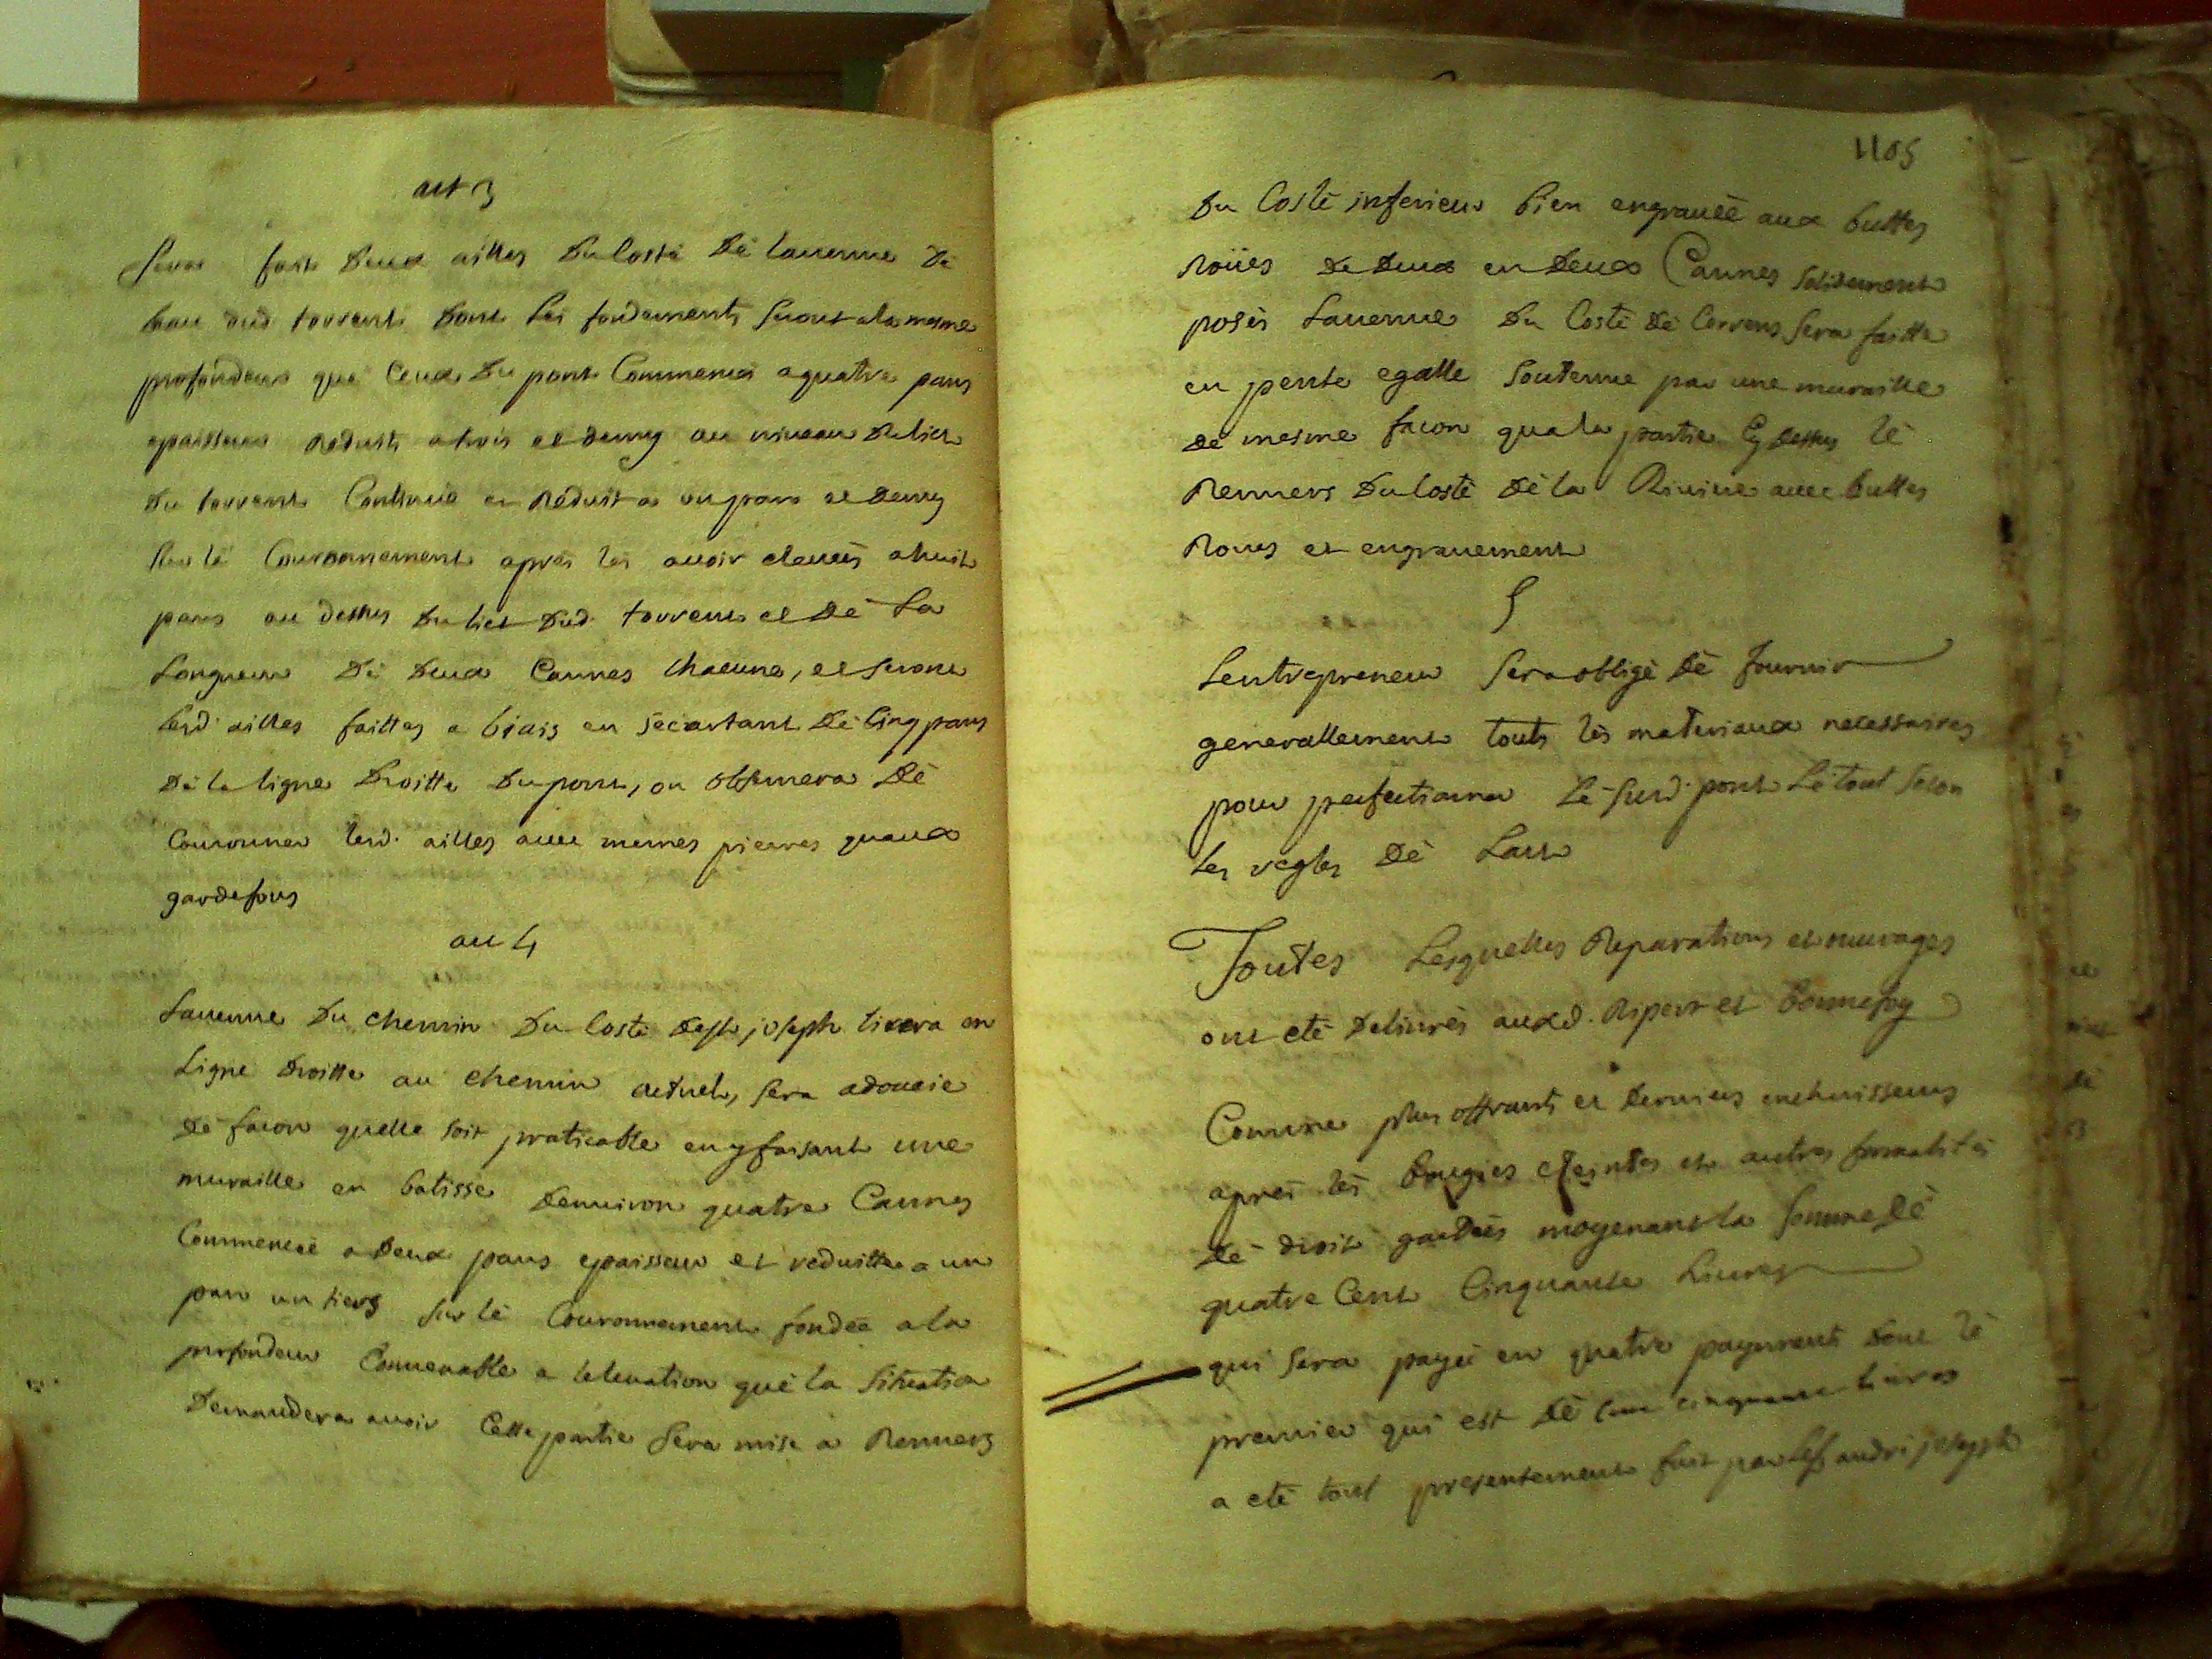 art 3
Sera fait deux ailles du costé dé lavenue dé
leau dud torrent dont les fondements seront ala mesme
profondeur qué ceux du pont Commencés a quatre pans
epaisseur reduits a trois et demy au niveau du lict
du torrent Continué et réduit a un pan et demy
sur lé Couronnement aprés les avoir elevées a huit
pans au dessus du lict dud. torrent et dé La
Longueur dé deux Cannes chacune, et seront
lesd. ailles faittes a biais en sécartant dé cinq pans
dé la ligne droitte du pont, on observera dé
Couronner lesd. ailles avec memes pierres quaux
gardefous
art 4
Lavenue du chemin du costé de st joseph tirera en
Ligne droitte au chemin actuel, sera adoucie
dé facon quelle soit praticable en y faisant une
muraille en batisse denviron quatre Cannes
Commencée a deux pans epaisseur et reduitte a un
pan un tiers sur lé Couronnement fondée a la
profondeur Convenable a lelevation qué la situation
demandera avoir Cette partie sera mise a Renvers
1105
du Costé inferieur bien engravée aux buttes
roües de deux en deux Cannes solidement
posés Lavenue du Costé dé Correns sera faitte
en pente egalle soutenue par une muraille
dé mesme facon qua la partie cy dessus lé
Renvers du costé dé la Riviere avec buttes
Roues et engravement
5
Lentrepreneur sera obligé dé fournir
generallement touts lés materiaux necessaires
pour perfectionner lé susd. pont Lé tout selon
les regles dé Lart
Toutes Lesquelles Reparations et ouvrages
ont eté delivrés auxd. Ripert et Bonnefoy
Comme plus offrants et derniers encherisseurs
aprés lés bougies eteintes et autres formalités
dé droit gardées moyenant la somme dé
quatre Cent Cinquante Livres
qui sera payée en quatre payements dont lé
premier qui est dé cent cinquante livres
a eté tout presentement fait par Le sr andré joseph